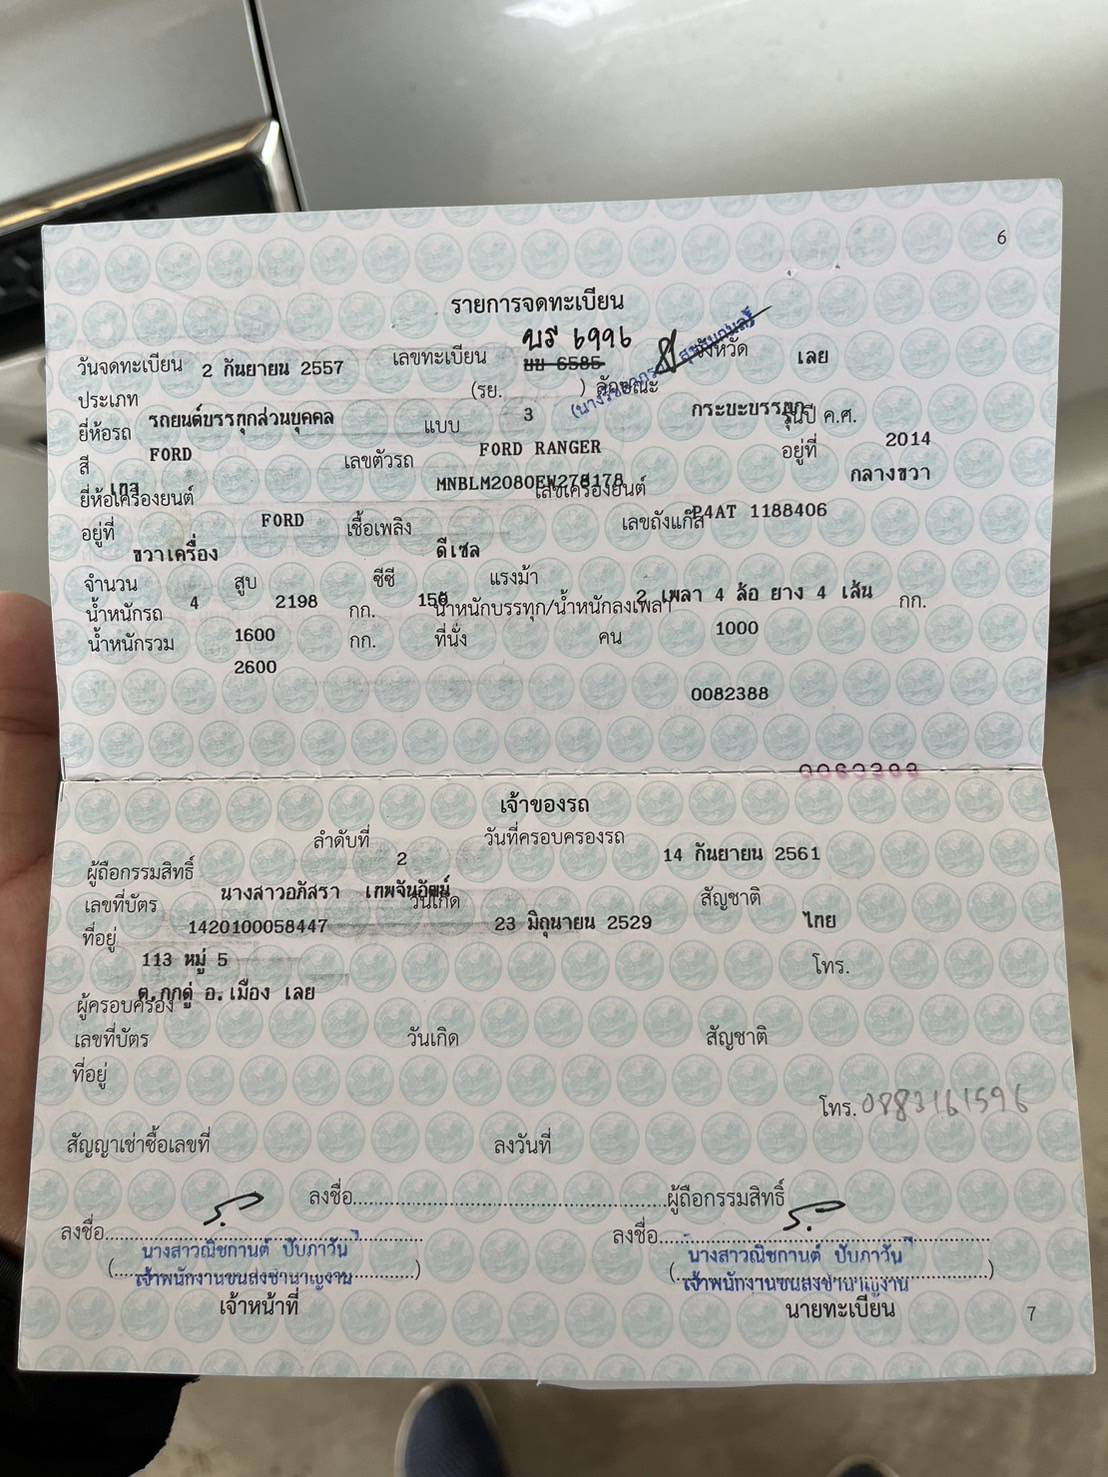 6
รายการจดทะเบียน
วันจดทะเบียน 2 กันยายน 2557 เลขทะเบียน บร 6996 จังหวัด เลย
บบ 6585
ประเภท (รย. ) ลักษณะ
รถยนต์บรรทุกส่วนบุคคล 3 กระบะบรรทุก
ยี่ห้อรถ แบบ รุ่นปี ค.ศ.
FORD FORD RANGER 2014
สี เลขตัวรถ อยู่ที่
เทา MNBLM2080EW278178 กลางขวา
ยี่ห้อเครื่องยนต์ เลขเครื่องยนต์
FORD P4AT 1188406
อยู่ที่ เชื้อเพลิง เลขถังแก๊ส
ขวาเครื่อง ดีเซล
จำนวน สูบ ซีซี แรงม้า
4 2198 150 2 เพลา 4 ล้อ ยาง 4 เส้น
น้ำหนักรถ กก. น้ำหนักบรรทุก/น้ำหนักลงเพลา กก.
1600 1000
น้ำหนักรวม กก. ที่นั่ง คน
2600
0082388
เจ้าของรถ
ลำดับที่ วันที่ครอบครองรถ
2 14 กันยายน 2561
ผู้ถือกรรมสิทธิ์
นางสาวอภัสรา
เลขที่บัตร วันเกิด สัญชาติ
1420100058447 23 มิถุนายน 2529 ไทย
ที่อยู่
113 หมู่ 5 โทร.
ต.กกดู่ อ.เมือง เลย
ผู้ครอบครอง
เลขที่บัตร วันเกิด สัญชาติ
ที่อยู่
โทร. 0883161596
สัญญาเช่าซื้อเลขที่ ลงวันที่
ลงชื่อ..........ผู้ถือกรรมสิทธิ์
ลงชื่อ.......... ลงชื่อ..........
นางสาวณิชกานต์ ปับภาวัน นางสาวณิชกานต์ ปับภาวัน
(เจ้าพนักงานขนส่งชำนาญงาน) (เจ้าพนักงานขนส่งชำนาญงาน)
เจ้าหน้าที่ นายทะเบียน
7